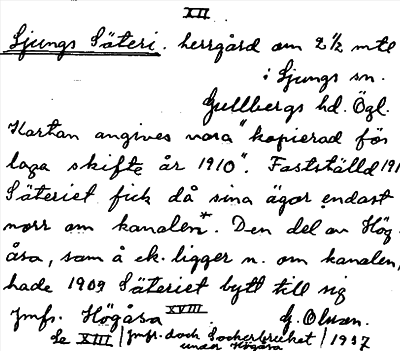 XII
Ljungs Säteri. herrgård om 2½ mtl
i Ljungs sn.
Gullbergs hd. Ögl.
Kartan angives vara "kopierad för
laga skifte år 1910". Fastställd 191
Säteriet fick då sina ägor endast
norr om kanalen*. Den del av Hög-
åsa, som å ek. ligger n. om kanalen,
hade 1909 Säteriet bytt till sig
Jmfr. Högåsa XVIII G. Olsson.
Se XIII / Jmfr. dock Sockerbruket / 1937
under Högåsa